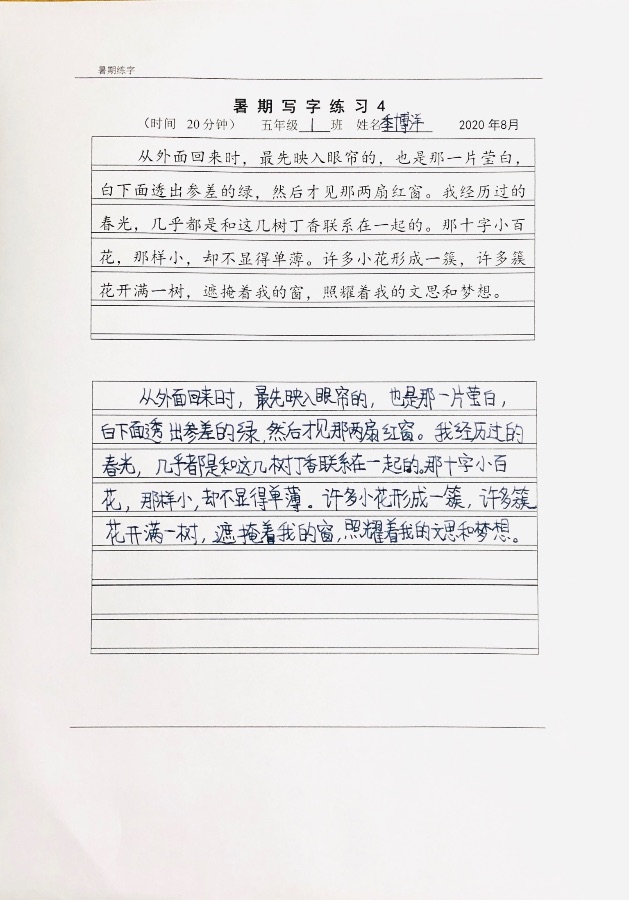 暑期练字
暑期写字练习4
（时间 20分钟） 五年级 1 班 姓名 季博洋 2020年8月
从外面回来时，最先映入眼帘的，也是那一片莹白，
白下面透出参差的绿，然后才见那两扇红窗。我经历过的
春光，几乎都是和这几树丁香联系在一起的。那十字小百
花，那样小，却不显得单薄。许多小花形成一簇，许多簇
花开满一树，遮掩着我的窗，照耀着我的文思和梦想。
从外面回来时，最先映入眼帘的，也是那一片莹白，
白下面透出参差的绿，然后才见那两扇红窗。我经历过的
春光，几乎都是和这几树丁香联系在一起的。那十字小百
花，那样小，却不显得单薄。许多小花形成一簇，许多簇
花开满一树，遮掩着我的窗，照耀着我的文思和梦想。